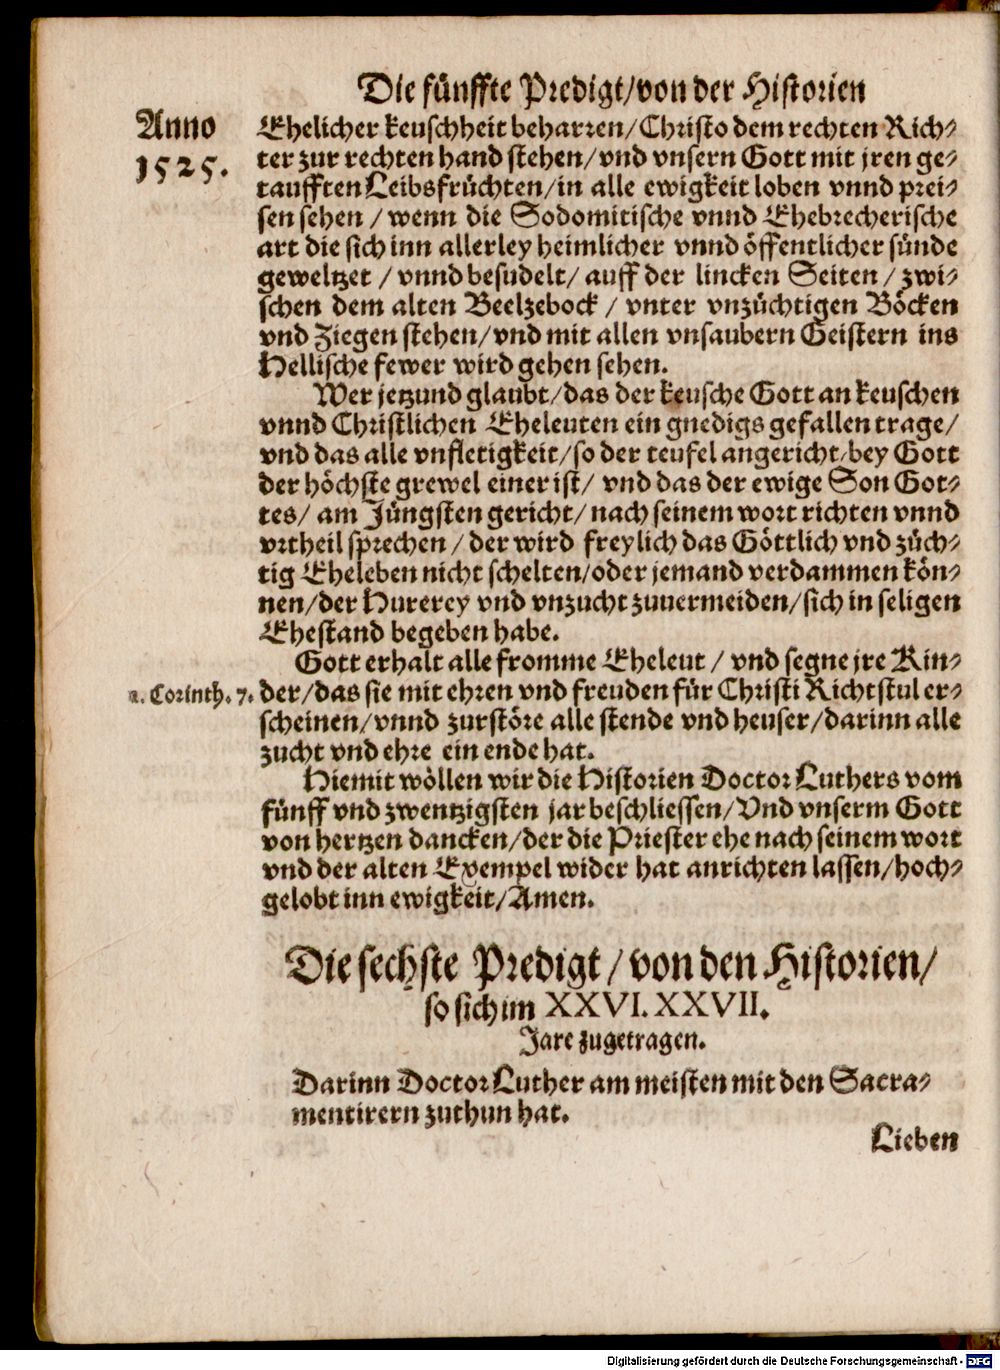 Die fünffte Predigt/von der Historien
Anno
1525.
Ehelicher keuschheit beharren/Christo dem rechten Rich⸗
ter zur rechten hand stehen/vnd vnsern Gott mit jren ge⸗
taufften Leibsfrüchten/in alle ewigkeit loben vnnd prei⸗
sen sehen / wenn die Sodomitische vnnd Ehebrecherische
art die sich inn allerley heimlicher vnnd öffentlicher sünde
geweltzet / vnnd besudelt/ auff der lincken Seiten / zwi⸗
schen dem alten Beelzebock / vnter vnzüchtigen Böcken
vnd Ziegen stehen/vnd mit allen vnsaubern Geistern ins
Hellische fewer wird gehen sehen.
Wer jetzund glaubt/das der keusche Gott an keuschen
vnnd Christlichen Eheleuten ein gnedigs gefallen trage/
vnd das alle vnfletigkeit/so der teufel angericht/bey Gott
der höchste grewel einer ist/ vnd das der ewige Son Got⸗
tes/ am Jüngsten gericht/ nach seinem wort richten vnnd
vrtheil sprechen / der wird freylich das Göttlich vnd züch⸗
tig Eheleben nicht schelten/oder jemand verdammen kön⸗
nen/der Hurerey vnd vnzucht zuuermeiden/sich in seligen
Ehestand begeben habe.
Gott erhalt alle fromme Eheleut / vnd segne jre Kin⸗
1. Corinth. 7. der/das sie mit ehren vnd freuden für Christi Richtstul er⸗
scheinen/vnnd zurstöre alle stende vnd heuser/darinn alle
zucht vnd ehre ein ende hat.
Hiemit wöllen wir die Historien Doctor Luthers vom
fünff vnd zwentzigsten jar beschliessen/Vnd vnserm Gott
von hertzen dancken/der die Priester ehe nach seinem wort
vnd der alten Exempel wider hat anrichten lassen/hoch⸗
gelobt inn ewigkeit/Amen.
Die sechste Predigt/von den Historien/
so sich im XXVI. XXVII.
Jare zugetragen.
Darinn Doctor Luther am meisten mit den Sacra⸗
mentirern zuthun hat.
Lieben
Digitalisierung gefördert durch die Deutsche Forschungsgemeinschaft - DFG